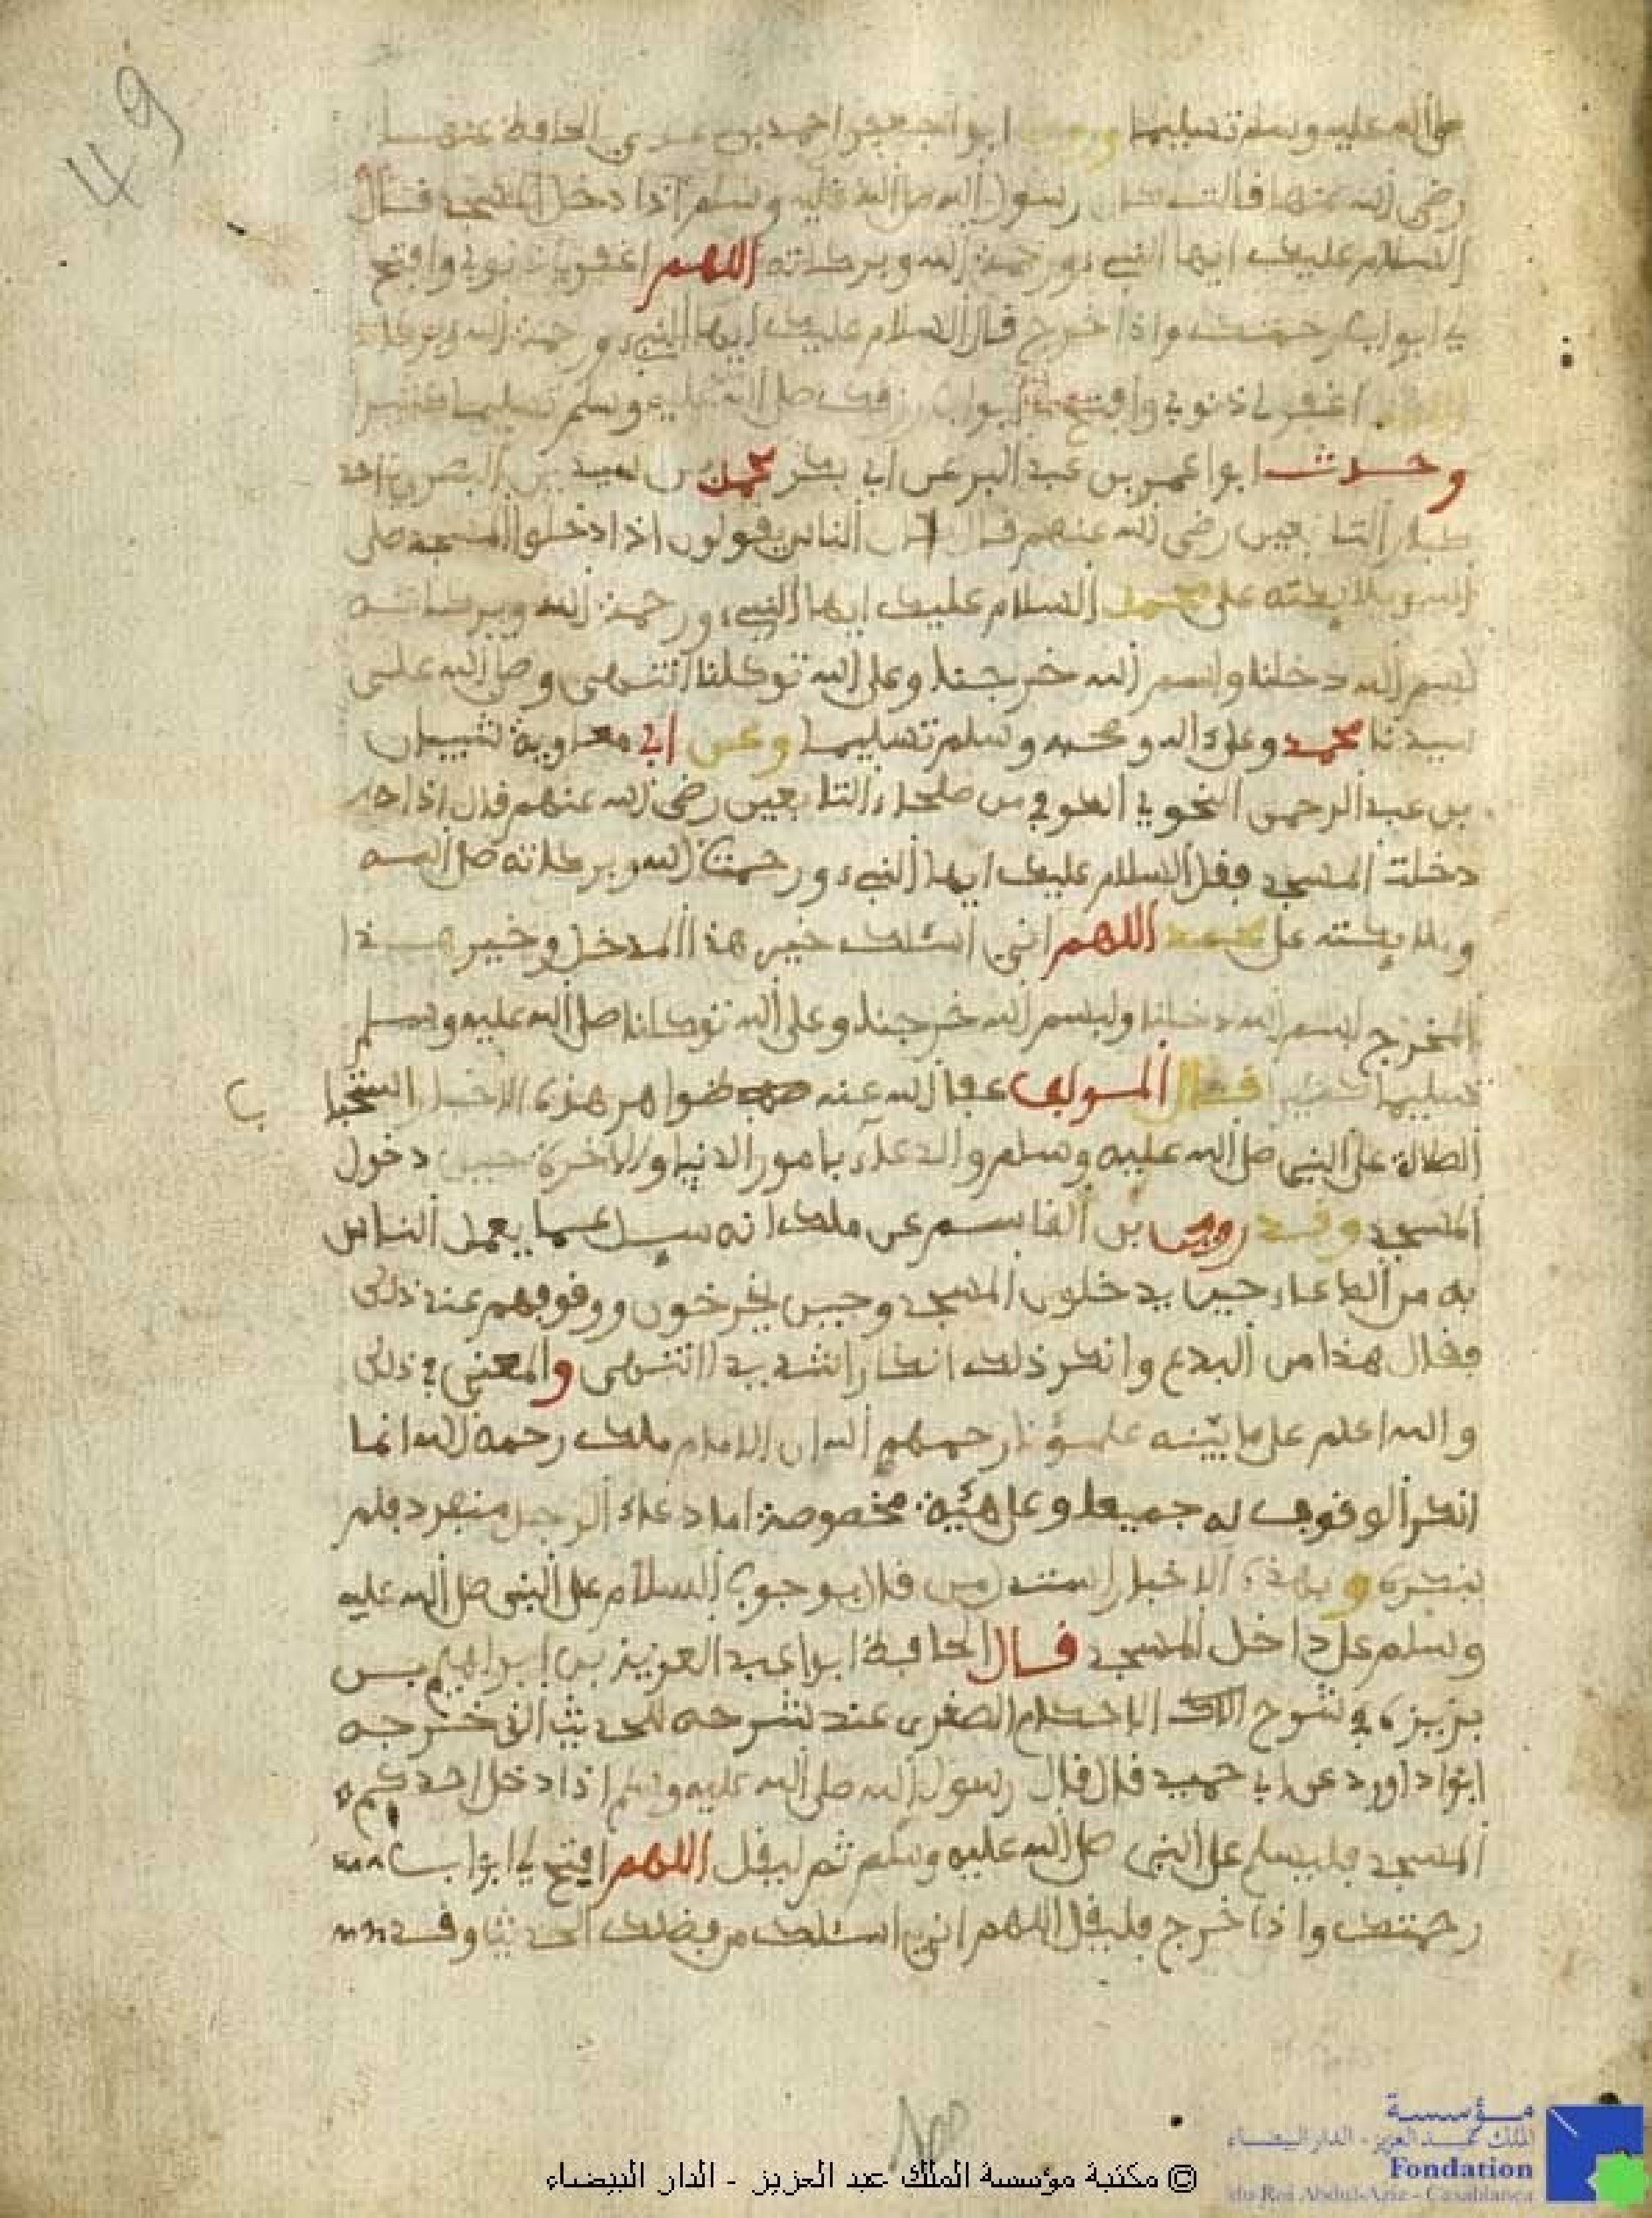 49
صلى الله عليه وسلم تسليما ابوا جعفر احمد بن عدي الحافظ عنها
رضي الله عنها قالت كان رسول الله صلى الله عليه وسلم اذا دخل المسجد قال
السلام عليك ايها النبيء ورحمة الله وبركاته اللهم اغفر لي ذنوبي وافتح
لي ابواب رحمتك واذا خرج قال السلام عليك ايها النبيء ورحمة الله وبركاته
اغفر لي ذنوبي وافتح لي ابواب رزقك صلى الله عليه وسلم تسليما كثيرا
وحدث ابوا عمر بن عبد البر عن ابي بكر محمد بن سيرين البصري احد
كبار التابعين رضي الله عنهم قال كان الناس يقولون اذا دخلوا المسجد صلى
الله وملايكته على محمد السلام عليك ايها النبيء ورحمة الله وبركاته
بسم الله دخلنا وبسم الله خرجنا وعلى الله توكلنا انتهى وصلى الله على
سيدنا محمد وعلى اله وصحبه وسلم تسليما وعن ابي معاوية شيبان
بن عبد الرحمن النحوي من صلحاء التابعين رضي الله عنهم قال اذا
دخلت المسجد فقل السلام عليك ايها النبيء ورحمت الله وبركاته صلى الله
وملايكته على محمد اللهم اني اسئلك خير هذا المدخل وخير هذا
المخرج بسم الله دخلنا وبسم الله خرجنا وعلى الله توكلنا صلى الله عليه وسلم
تسليما كثيرا قال المولف عفا الله عنه ظواهر هذه الاخبار استحبا
ب
الصلاة على النبي صلى الله عليه وسلم والدعاء بامور الدنيا والاخرة حين دخول
المسجد وقد روى بن القاسم عن ملك انه سيل عما يعمل الناس
به من الدعاء حين يدخلون المسجد وحين يخرجون ووقوفهم عند ذلك
فقال هذا من البدع وانكر ذلك انكارا شديدا انتهى والمعنى في ذلك
والله اعلم على ما بينه علمؤنا رحمهم الله ان الامام ملك رحمه الله انما
انكر الوقوف له جميعا وعلى هيئة مخصوصة اما دعاء الرجل منفرد فلم
ينكره وبهذه الاخبار استدل من قال بوجوب السلام على النبي صلى الله عليه
وسلم على داخل المسجد قال الحافظ ابوا عبد العزيز بن ابراهيم بن
بزيزة في شرح الاحكام الصغرى عند شرحه للحديث الذي خرجه
ابوا داوود عن ابي حميد قال قال رسول الله صلى الله عليه وسلم اذا دخل احدكم
المسجد فليسلم على النبي صلى الله عليه وسلم ثم ليقل اللهم افتح لي ابواب
رحمتك واذا خرج فليقل اللهم اني اسئلك من فضلك الحديث وقد
© مكتبة مؤسسة الملك عبد العزيز - الدار البيضاء
مؤسسة
الملك عبد العزيز - الدار البيضاء
Fondation
du Roi Abdul-Aziz - Casablanca